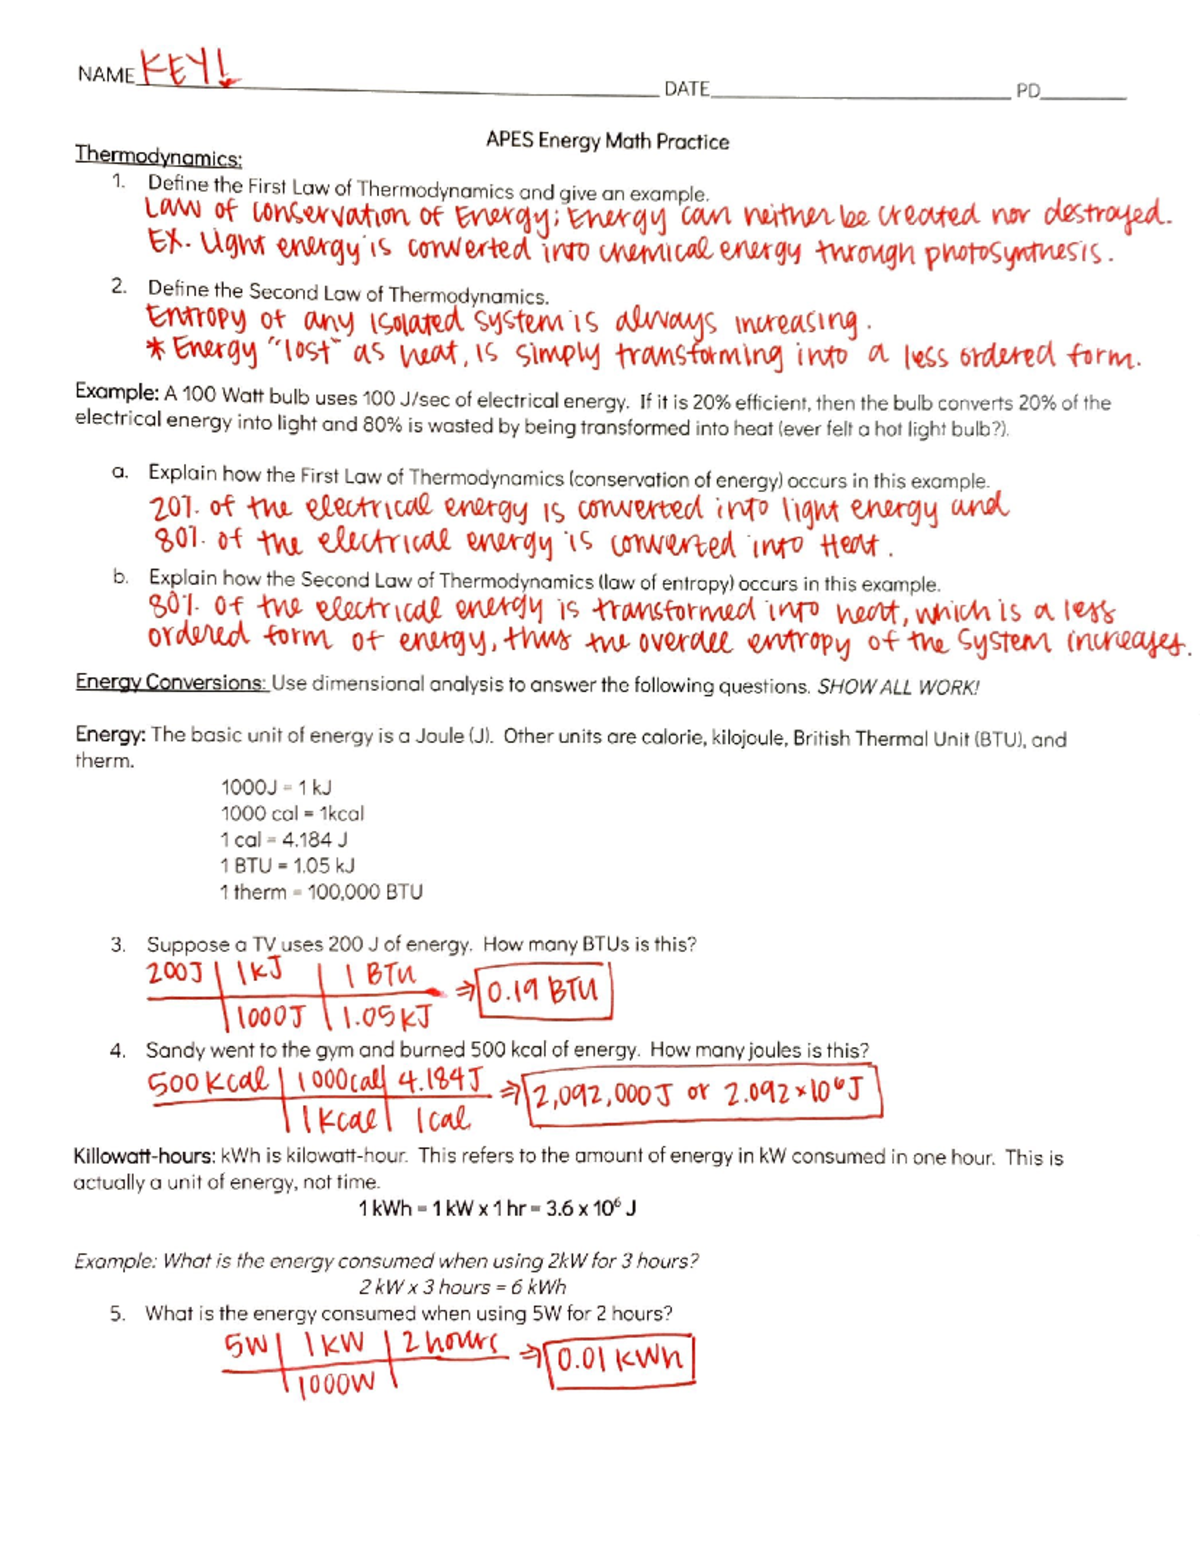 NAME KEY! DATE PD
APES Energy Math Practice
Thermodynamics:
1. Define the First Law of Thermodynamics and give an example.
Law of conservation of Energy; Energy can neither be created nor destroyed.
EX. Light energy is converted into chemical energy through photosynthesis.
2. Define the Second Law of Thermodynamics.
Entropy of any isolated system is always increasing.
* Energy "lost" as heat, is simply transforming into a less ordered form.
Example: A 100 Watt bulb uses 100 J/sec of electrical energy. If it is 20% efficient, then the bulb converts 20% of the
electrical energy into light and 80% is wasted by being transformed into heat (ever felt a hot light bulb?).
a. Explain how the First Law of Thermodynamics (conservation of energy) occurs in this example.
20% of the electrical energy is converted into light energy and
80% of the electrical energy is converted into Heat.
b. Explain how the Second Law of Thermodynamics (law of entropy) occurs in this example.
80% of the electrical energy is transformed into heat, which is a less
ordered form of energy, thus the overall entropy of the system increases.
Energy Conversions: Use dimensional analysis to answer the following questions. SHOW ALL WORK!
Energy: The basic unit of energy is a Joule (J). Other units are calorie, kilojoule, British Thermal Unit (BTU), and
therm.
1000J = 1 kJ
1000 cal = 1kcal
1 cal = 4.184 J
1 BTU = 1.05 kJ
1 therm = 100,000 BTU
3. Suppose a TV uses 200 J of energy. How many BTUs is this?
200J | 1KJ | 1 BTU
⇒ 0.19 BTU
| 1000J | 1.05KJ
4. Sandy went to the gym and burned 500 kcal of energy. How many joules is this?
500 Kcal | 1000cal | 4.184J
⇒ 2,092,000J or 2.092×10⁶J
| 1Kcal | 1cal
Killowatt-hours: kWh is kilowatt-hour. This refers to the amount of energy in kW consumed in one hour. This is
actually a unit of energy, not time.
1 kWh = 1 kW x 1 hr = 3.6 x 10⁶ J
Example: What is the energy consumed when using 2kW for 3 hours?
2 kW x 3 hours = 6 kWh
5. What is the energy consumed when using 5W for 2 hours?
5W | 1KW | 2 hours
⇒ 0.01 KWh
| 1000W |